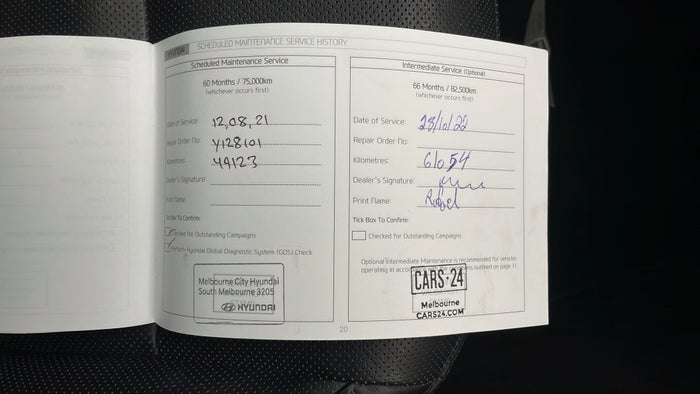 HYUNDAI SCHEDULED MAINTENANCE SERVICE HISTORY
Scheduled Maintenance Service
60 Months / 75,000km
(whichever occurs first)
Date of Service: 12,08,21
Repair Order No: Y128101
Kilometres: 49123
Dealer's Signature:
Print Name:
Tick Box To Confirm:
Checked for Outstanding Campaigns
Perform Hyundai Global Diagnostic System (GDS) Check
Melbourne City Hyundai
South Melbourne 3205
HYUNDAI
Intermediate Service (Optional)
66 Months / 82,500km
(whichever occurs first)
Date of Service: 28/10/22
Repair Order No:
Kilometres: 61054
Dealer's Signature:
Print Name:
Tick Box To Confirm:
Checked for Outstanding Campaigns
Optional Intermediate Maintenance is recommended for vehicles
operating in outlined on page 11
CARS24
Melbourne
CARS24.COM
20